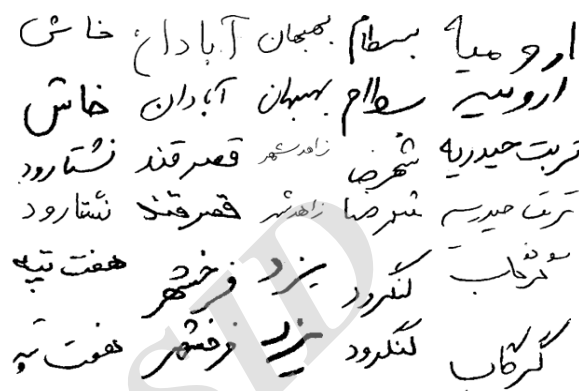 ارومیه بسطام بهبهان آبادان خاش
ارومیه بسطام بهبهان آبادان خاش
تربت حیدریه شهرضا زاهدشهر قصرقند نشتارود
تربت حیدریه شهرضا زاهدشهر قصرقند نشتارود
گرگاب کنگرود یزد فرخشهر هفت تپه
گرگاب کنگرود یزد فرخشهر هفت تپه
SID